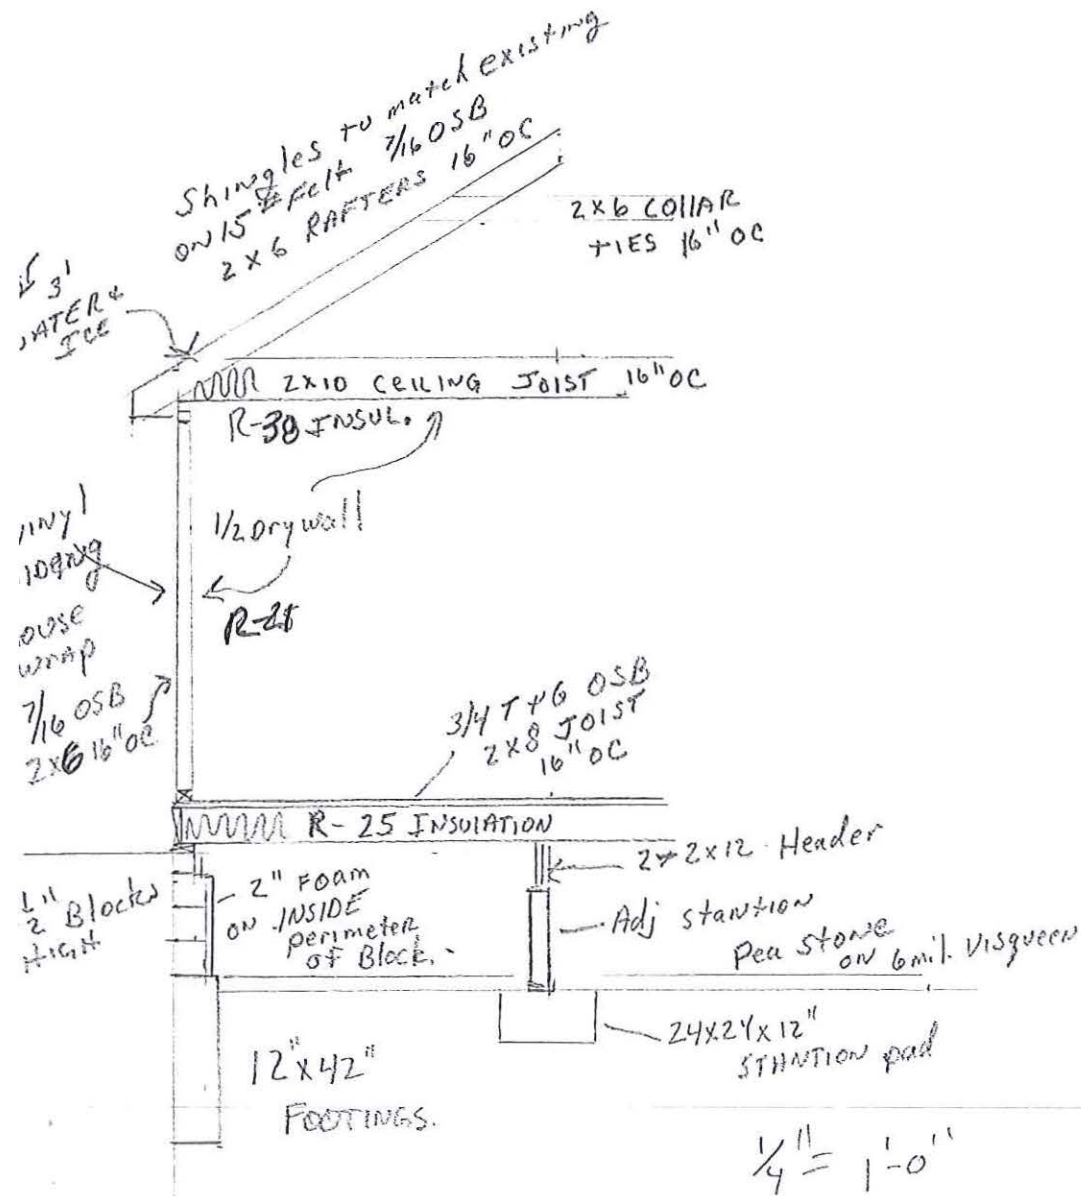 Shingles to match existing
ON 15# Felt 7/16 OSB
2x6 RAFTERS 16" OC
2x6 COllAR
TIES 16" OC
3'
ATER &
ICE
2x10 CEILING JOIST 16" OC
R-38 INSUL.
1/2 Drywall
inyl
iding
R-21
ouse
wrap
7/16 OSB
2x6 16" OC
3/4 T+G OSB
2x8 JOIST
16" OC
R-25 INSULATION
2-2x12 Header
2" FOAM
ON INSIDE
perimeter
of Block.
Blocks
HIGH
Adj stantion
Pea Stone
ON 6 mil. Visqueen
24x24x12"
STANTION pad
12"x42"
FOOTINGS.
1/4" = 1'-0"